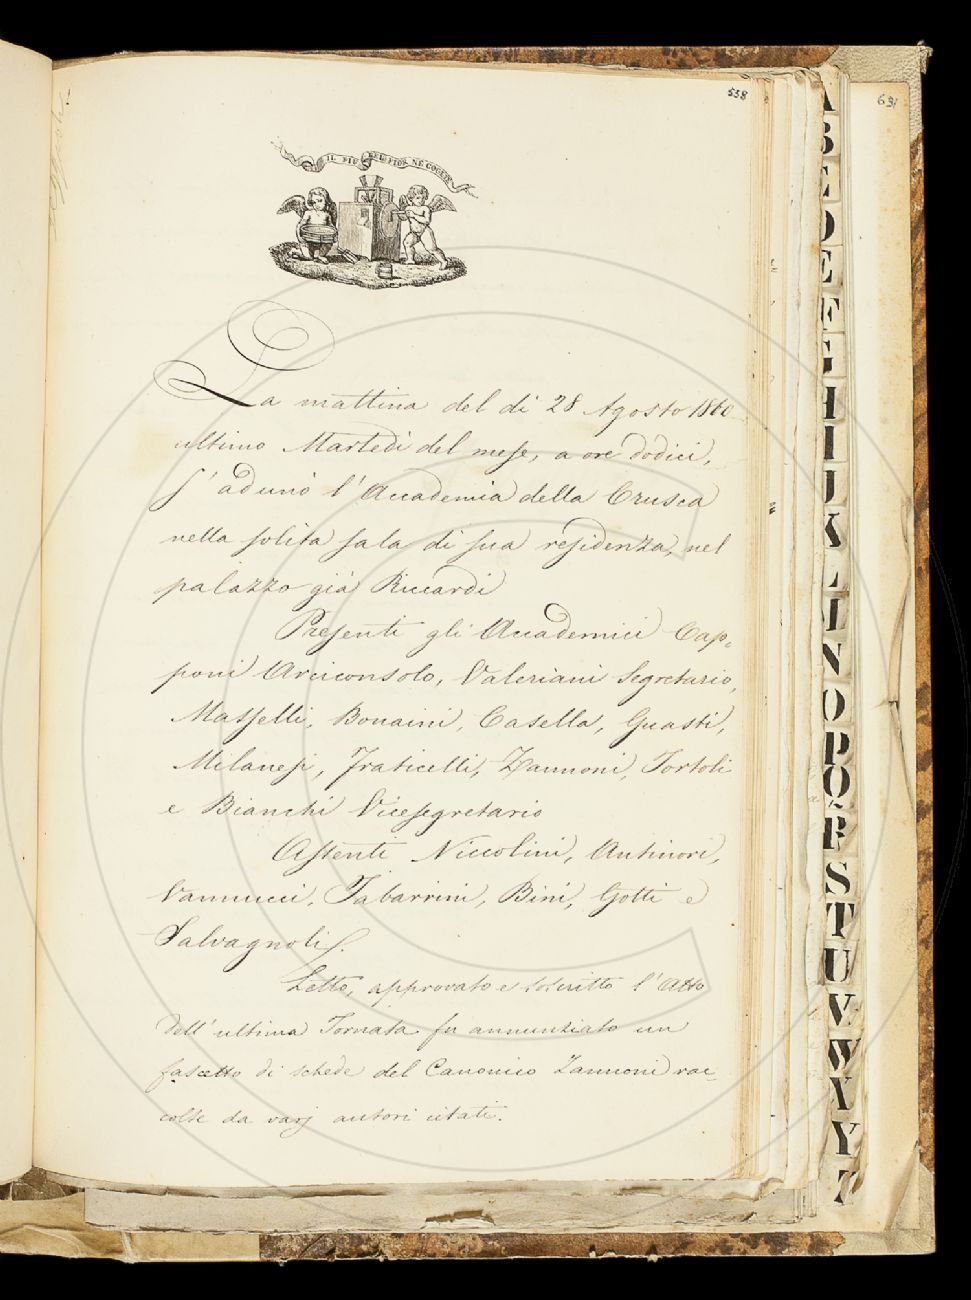 538
691
IL PIÙ BEL FIOR NE COGLIE
La mattina del dì 28 Agosto 1860
ultimo Martedì del mese, a ore dodici,
s'adunò l'Accademia della Crusca
nella solita sala di sua residenza, nel
palazzo già Riccardi
Presenti gli Accademici Cap-
poni Arciconsolo, Valeriani Segretario,
Masselli, Bonaini, Casella, Guasti,
Milanesi, Fraticelli, Zannoni, Tortoli
e Bianchi Vicesegretario
Assenti Niccolini, Antinori,
Vannucci, Tabarrini, Bini, Gotti e
Salvagnoli.
Letto, approvato e soscritto l'Atto
dell'ultima Tornata fu annunziato un
fascetto di schede del Canonico Zannoni rac-
colte da varj autori citati.
A
B
C
D
E
F
G
H
I
J
K
L
M
N
O
P
Q
R
S
T
U
V
W
X
Y
Z